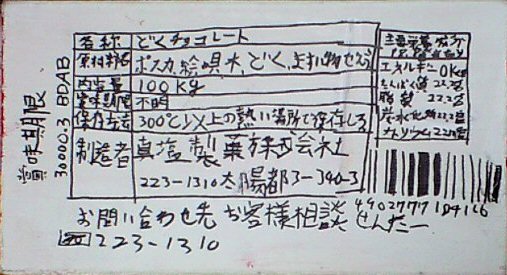 名称 どくチョコレート
原材料名 ポスカ、絵唄水、どく、よます物せんざい
内容量 100Kg
賞味期限 不明
保存方法 300℃以上の熱い場所で保存しろ
制造者 真塩製薬株式会社
223-1310太陽都3-340-3
主要栄養成分
エネルギー 0Kg
たんぱく質 22.2g
脂質 22.2g
炭水化物 22.2g
ナトリウム 22.2g
賞味期限
30000.3 BDAB
4902777104116
お問い合わせ先 お客様相談せんたー
223-1310